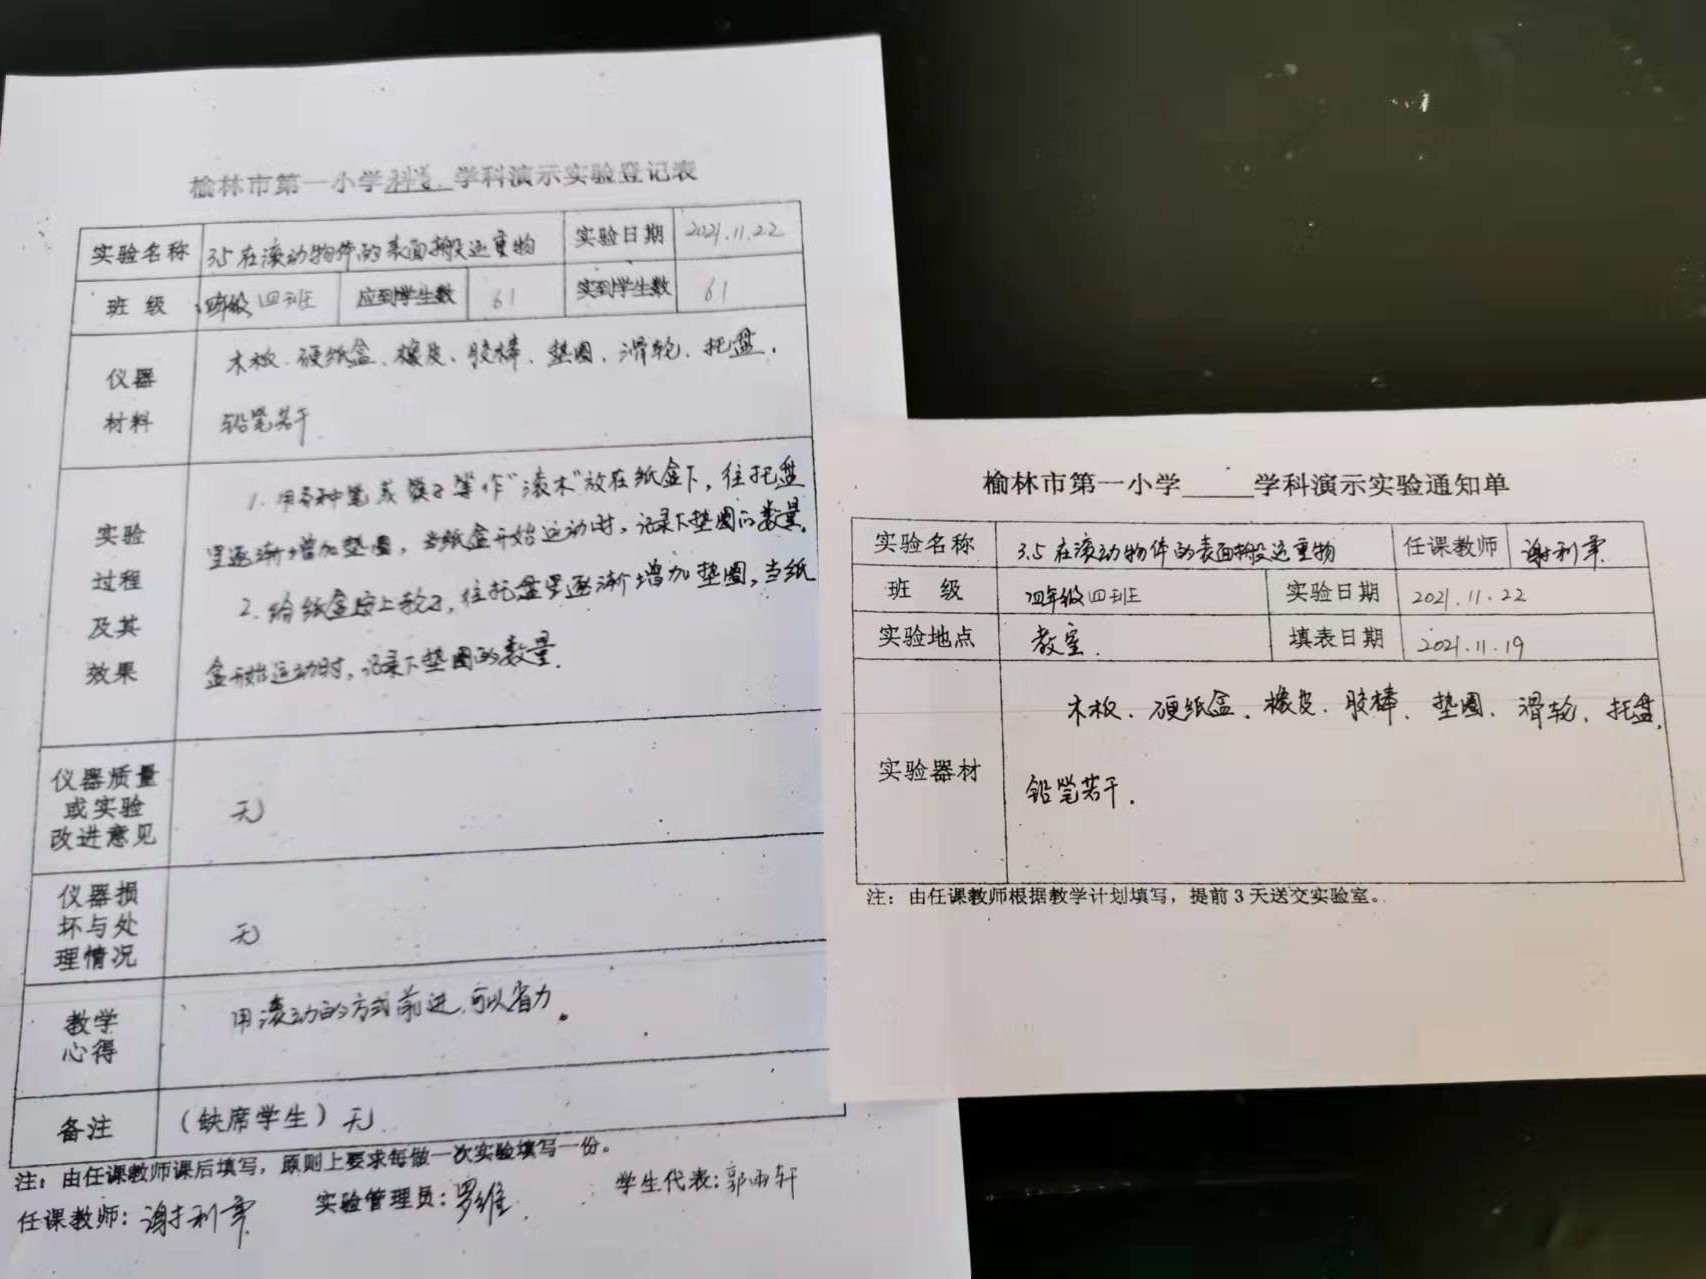 榆林市第一小学科学学科演示实验登记表
实验名称 3.5在滚动物体的表面搬运重物 实验日期 2021.11.22
班 级 四年级四班 应到学生数 61 实到学生数 61
仪器
材料
木板、硬纸盒、橡皮、胶棒、垫圈、滑轮、托盘、
铅笔若干
实验
过程
及其
效果
1. 用各种笔或筷子等作“滚木”放在纸盒下，往托盘
里逐渐增加垫圈，当纸盒开始运动时，记录下垫圈的数量。
2. 给纸盒按上轮子，往托盘里逐渐增加垫圈，当纸
盒开始运动时，记录下垫圈的数量.
仪器质量
或实验
改进意见
无
仪器损
坏与处
理情况
无
教学
心得
用滚动的方式前进，可以省力。
备注 （缺席学生）无
注：由任课教师课后填写，原则上要求每做一次实验填写一份。
任课教师：谢利 实验管理员：罗维 学生代表：郭雨轩
榆林市第一小学_____学科演示实验通知单
实验名称 3.5在滚动物体的表面搬运重物 任课教师 谢利
班 级 四年级四班 实验日期 2021.11.22
实验地点 教室. 填表日期 2021.11.19
实验器材
木板、硬纸盒、橡皮、胶棒、垫圈、滑轮、托盘、
铅笔若干.
注：由任课教师根据教学计划填写，提前3天送交实验室。